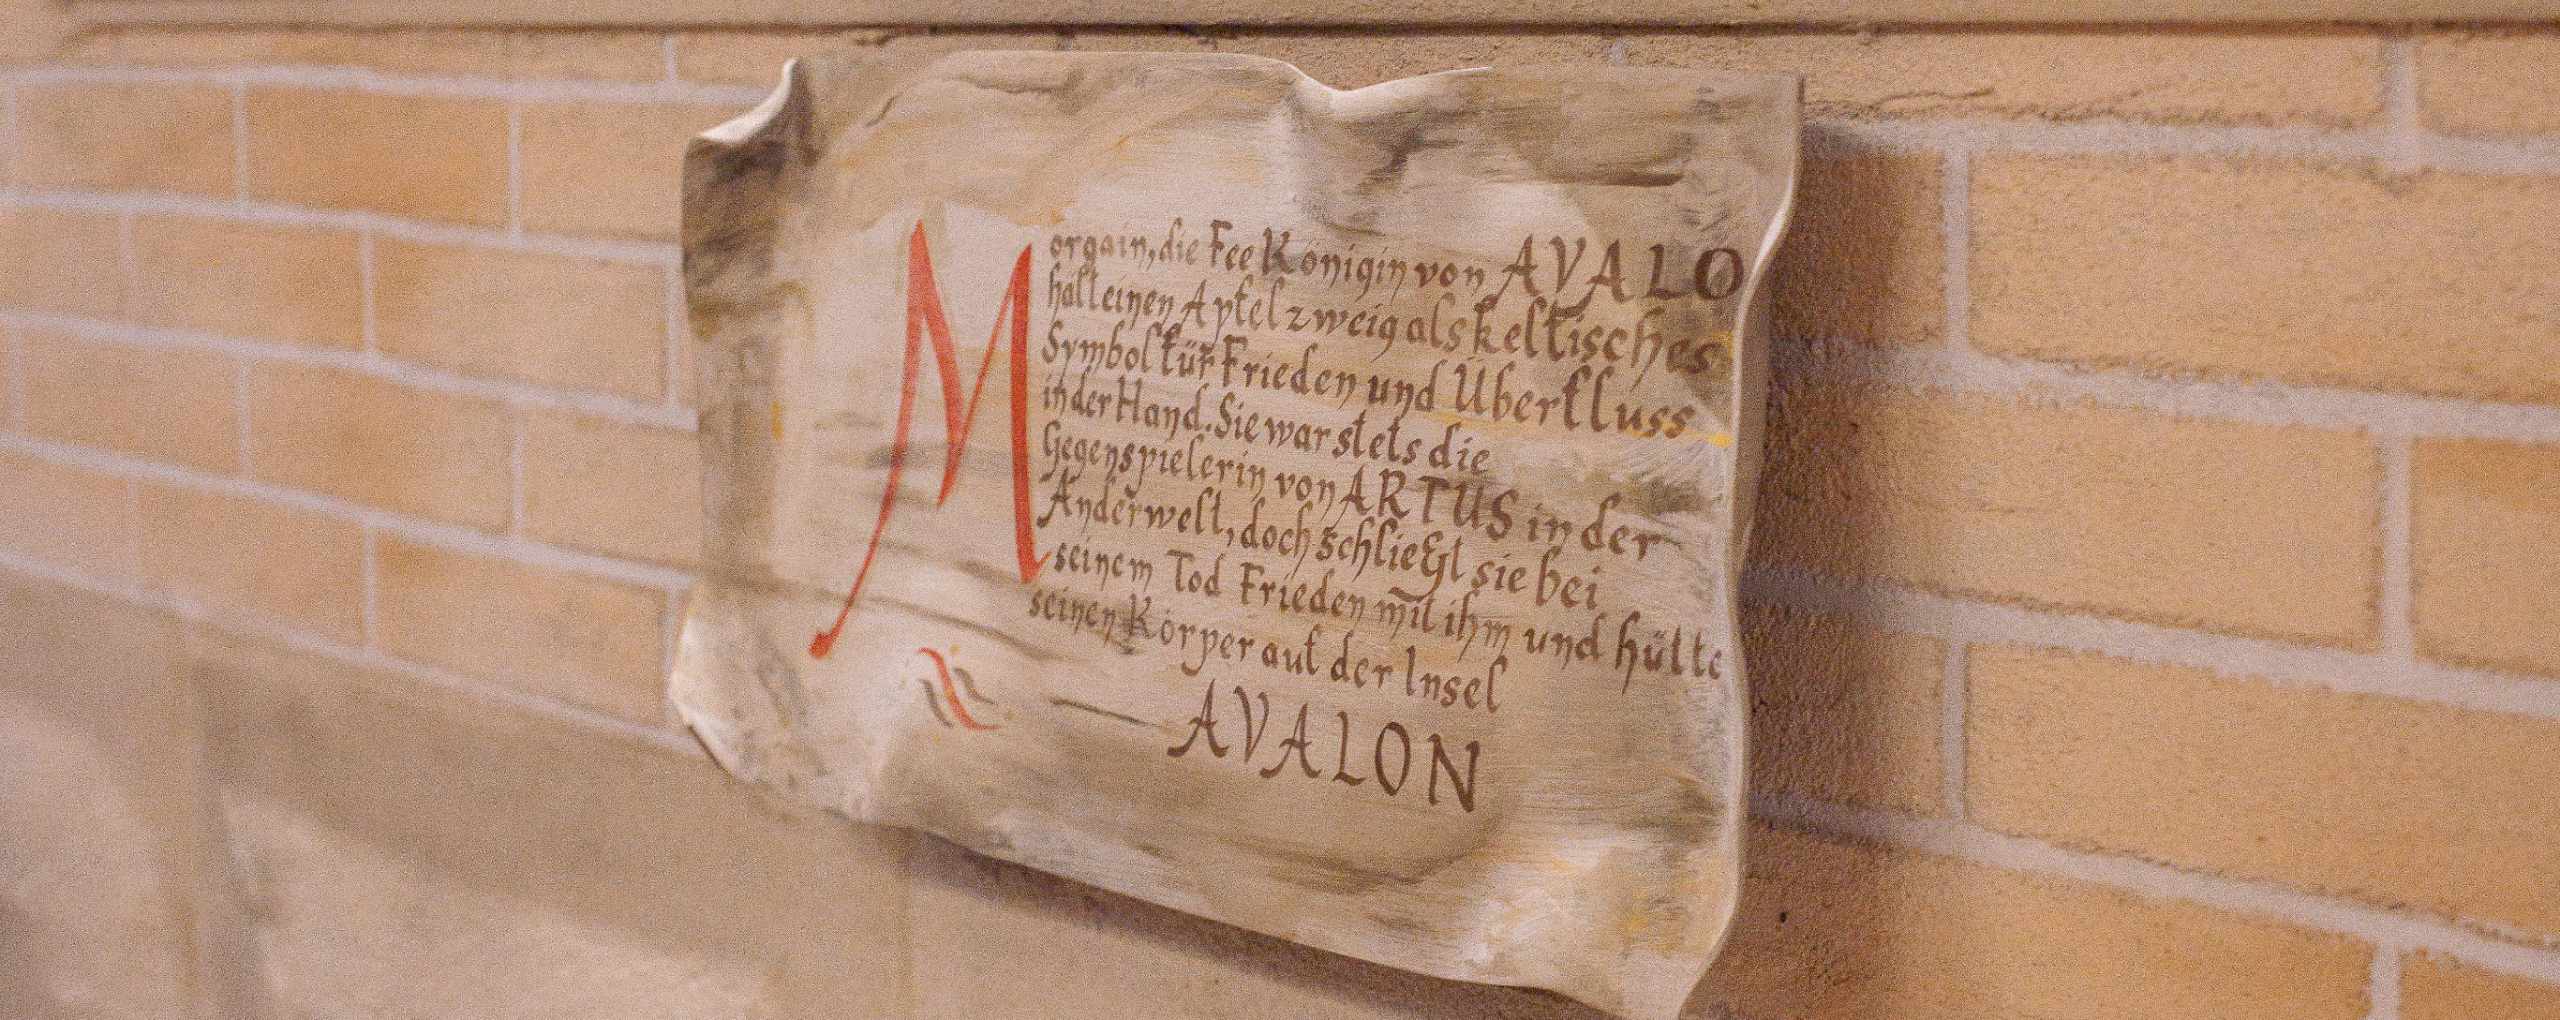 Morgain, die Fee Königin von AVALO
hält einen Apfelzweig als keltisches
Symbol für Frieden und Überfluss
in der Hand. Sie war stets die
Gegenspielerin von ARTUS in der
Anderwelt, doch schließt sie bei
seinem Tod Frieden mit ihm und hütte
seinen Körper auf der Insel
AVALON